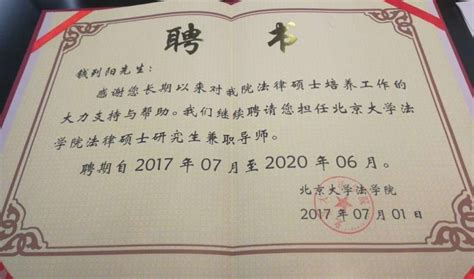 聘 书
钱列阳先生：
感谢您长期以来对我院法律硕士培养工作的
大力支持与帮助。我们继续聘请您担任北京大学法
学院法律硕士研究生兼职导师。
聘期自 2017 年 07 月至 2020 年 06 月。
北京大学法学院
2017 年 07 月 01 日